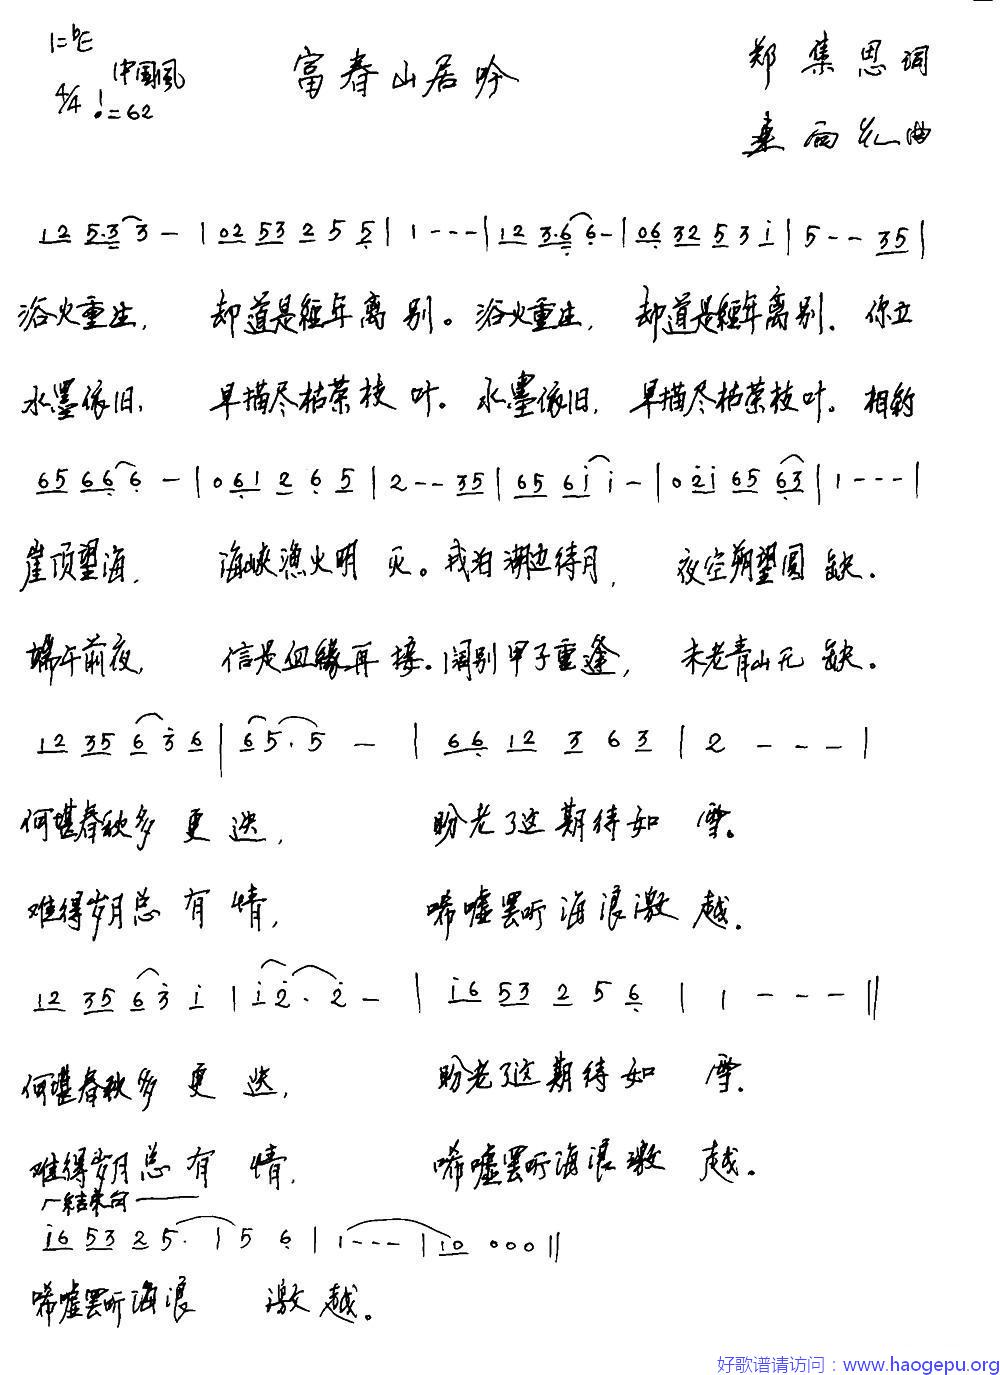 1=bE
富春山居吟
郑集思词
中国风
4/4 ♩=62
雨 曲
12 5.3 3 - | 02 53 2 5 5 | 1 - - - | 12 3.6 6 - | 06 32 5 3 i | 5 - - 35 |
浴火重生, 却道是經年离别。浴火重生, 却道是經年离别. 你立
水墨依旧, 早描尽枯荣枝叶。水墨依旧, 早描尽枯荣枝叶。相約
65 66 6 - | 0 61 2 6 5 | 2 - - 35 | 65 6i i - | 0 2i 65 63 | 1 - - - |
崖顶望海, 海峡渔火明灭。我泊湖边待月, 夜空朔望圆缺.
端午前夜, 信是血緣再接. 阔别甲子重逢, 未老青山无缺。
12 35 6 3 6 | 6 5. 5 - | 66 12 3 6 3 | 2 - - - |
何堪春秋多更迭, 盼老了这期待如雪。
难得岁月总有情, 唏嘘罢听海浪激越.
12 35 6 3 i | i 2. 2 - | i6 53 2 5 6 | 1 - - - ||
何堪春秋多更迭, 盼老了这期待如雪.
难得岁月总有情, 唏嘘罢听海浪激越。
结束句
i6 53 2 5. | 5 6 | 1 - - - | 10 0 0 0 ||
唏嘘罢听海浪 激越。
好歌谱请访问：www.haogepu.org